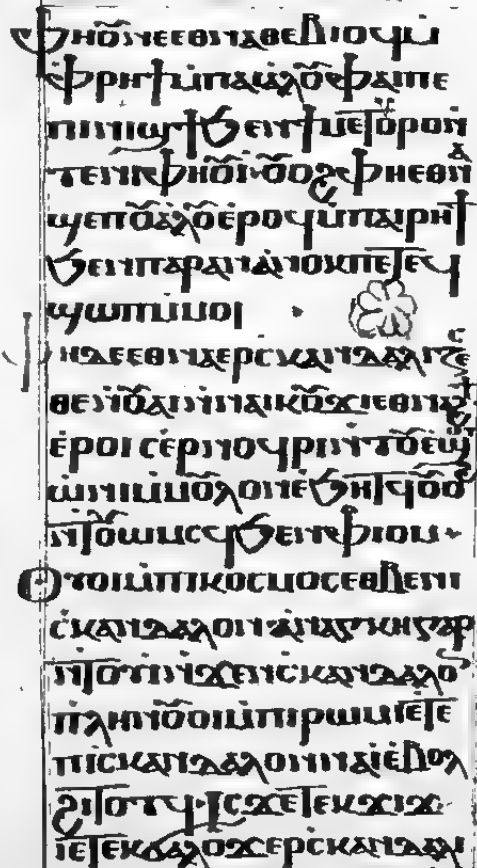 ⲫⲏⲟⲩⲛⲉⲑⲛⲁⲑⲉⲃⲓⲟϥⲙ̇
ⲫⲣⲏϯⲙ̇ⲡⲁⲓⲁⲗⲟⲩⲫⲁⲓⲡⲉ
ⲡⲓⲛⲓϣϯϧⲉⲛϯⲙⲉⲧⲟⲩⲣⲟⲛ̇
ⲧⲉⲛⲓⲫⲏⲟⲩⲓ·ⲟⲩⲟϩⲫⲏⲉⲑⲛⲁ
ϣⲉⲡⲟⲩⲁⲗⲟⲩⲉ̇ⲣⲟϥⲙ̇ⲡⲁⲓⲣⲏϯ
ϧⲉⲛⲡⲁⲣⲁⲛⲁ̇ⲛⲟⲕⲡⲉⲧⲉϥ
ϣⲱⲡⲙ̇ⲙⲟⲓ
ⲫⲏⲇⲉⲉⲑⲛⲁⲉⲣⲥⲕⲁⲛⲇⲁⲗⲓⲍⲉⲥ
ⲑⲉⲛ̇ⲟⲩⲁⲓⲛ̇ⲛⲁⲓⲕⲟⲩϫⲓⲉⲑⲛⲁϩϯ
ⲉ̇ⲣⲟⲓⲥⲉⲣⲛⲟϥⲣⲓⲛⲁϥⲛ̇ⲧⲟⲩⲉϣ
ⲱ̇ⲛⲓⲙ̇ⲙⲟⲩⲗⲟⲛⲉ̇ϧⲏⲧϥⲟⲩⲟϩ
ⲛ̇ⲧⲟⲩⲟⲙⲥϥϧⲉⲛⲫⲓⲟⲙ·
ⲟⲩⲟⲓⲙ̇ⲡⲓⲕⲟⲥⲙⲟⲥⲉⲑⲃⲉⲛⲓ
ⲥ̇ⲕⲁⲛⲇⲁⲗⲟⲛⲁ̇ⲛⲁⲅⲕⲏⲅⲁⲣ
ⲛ̇ⲧⲟⲩⲓ̇ⲛ̇ϫⲉⲛⲓⲥⲕⲁⲛⲇⲁⲗⲟⲛ
ⲡⲗⲏⲛⲟⲩⲟⲓⲙ̇ⲡⲓⲣⲱⲙⲓⲉ̇ⲧⲉ
ⲡⲓⲥⲕⲁⲛⲇⲁⲗⲟⲛⲛⲁⲓ̇ⲉ̇ⲃⲟⲗ
ϩⲓⲧⲟⲧϥ·ⲓⲥϫⲉⲧⲉⲕϫⲓϫ
ⲓⲉⲧⲉⲕϭⲁⲗⲟϫⲉⲣⲥⲕⲁⲛⲇⲁⲗⲓ